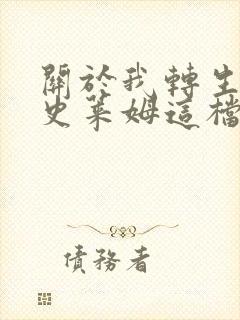 關於我轉生
史萊姆這檔
債務者